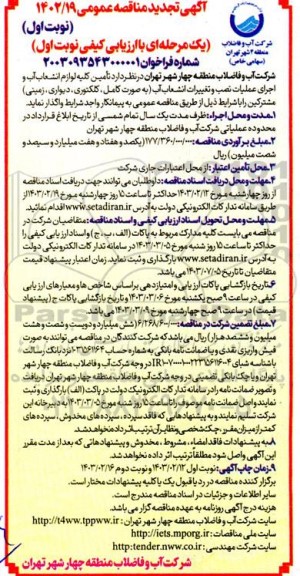 آگهی تجدید مناقصه عمومی ۱۴۰۲/۱۹
(نوبت اول)
(یک مرحله‌ای با ارزیابی کیفی نوبت اول)
شماره فراخوان ۲۰۰۳۰۹۳۵۴۳۰۰۰۰۰۱
شرکت آب و فاضلاب
منطقه ۴ شهر تهران
(سهامی خاص)
شرکت آب و فاضلاب منطقه چهار شهر تهران در نظر دارد تأمین کلیه لوازم انشعاب آب و
اجرای عملیات نصب و تغییرات انشعاب آب (به صورت کامل، کلکتوری، دیواری، زمینی)
مشترکین را با شرایط ذیل از طریق مناقصه عمومی به پیمانکار واجد شرایط واگذار نماید.
۱.مدت و محل اجراء: ظرف مدت یک سال تمام شمسی از تاریخ ابلاغ قرارداد در
محدوده عملیاتی شرکت آب و فاضلاب منطقه چهار شهر تهران
۲.مبلغ برآوردی مناقصه: ۱۷۷/۳۶۰/۰۰۰/۰۰۰ (یکصد و هفتاد و هفت میلیارد و سیصد و
شصت میلیون) ریال
۳.محل تأمین اعتبار: از محل اعتبارات جاری شرکت
۴.مهلت و محل دریافت اسناد مناقصه: داوطلبان می توانند جهت دریافت اسناد مناقصه
از روز چهارشنبه مورخ ۱۴۰۳/۰۲/۱۲ حداکثر تا ساعت ۱۵ روز چهارشنبه مورخ ۱۴۰۳/۰۲/۱۹ از
طریق سامانه تدارکات الکترونیکی دولت به آدرس www.setadiran.ir اقدام نمایند.
۵.مهلت و محل تحویل اسناد ارزیابی کیفی و اسناد مناقصه: متقاضیان شرکت در
مناقصه می بایست کلیه مدارک مربوط به پاکات (الف، ب، ج) و اسناد ارزیابی کیفی را
حداکثر تا ساعت ۱۵ روز شنبه مورخ ۱۴۰۳/۰۳/۰۵ در سامانه تدارکات الکترونیکی دولت
به آدرس www.setadiran.ir بارگذاری و ثبت نماید. زمان اعتبار پیشنهاد قیمت
متقاضیان تا تاریخ ۱۴۰۳/۰۷/۰۵ می باشد.
۶.تاریخ بازگشایی پاکات: ارزیابی و امتیازدهی بر اساس شاخص ها و معیارهای ارزیابی
کیفی در ساعت ۹ صبح یکشنبه مورخ ۱۴۰۳/۰۳/۰۶ و تاریخ بازگشایی پاکات ج (پیشنهاد
قیمت) در ساعت ۹ صبح چهارشنبه مورخ ۱۴۰۳/۰۳/۰۹ می باشد.
۷.مبلغ تضمین شرکت در مناقصه: ۶/۲۶۸/۶۰۰/۰۰۰ (شش میلیارد و دویست و شصت و هشت
میلیون و ششصد هزار) ریال می باشد که شرکت کنندگان در مناقصه می توانند به صورت
فیش واریزی نقدی و یا ضمانت نامه بانکی به شماره حساب
تهران و یا چک بانکی تضمینی در وجه شرکت آب و فاضلاب منطقه چهار شهر تهران دریافت
و تصویر ضمانت نامه را در سامانه تدارکات الکترونیک دولت در پاکت الف بارگذاری و ثبت
نمایند و اصل ضمانت نامه بصورت فیزیکی تا ساعت ۱۵ روز شنبه مورخ ۱۴۰۳/۰۳/۰۵ به دبیرخانه این
شرکت تسلیم نمایند و به پیشنهادهایی که فاقد سپرده، سپرده های مخدوش، سپرده های
کمتر از میزان مقرر، چک شخصی و نظایر آن ترتیب اثر داده نخواهد شد.
۸.به پیشنهادات فاقد امضاء، مشروط، مخدوش و پیشنهاداتی که بعد از مدت مقرر
این آگهی واصل شود مطلقا ترتیب اثر داده نخواهد شد.
۹.زمان چاپ آگهی: نوبت اول ۱۴۰۳/۰۲/۱۲ و نوبت دوم ۱۴۰۳/۰۲/۱۶
برگزار کننده مناقصه در رد یا قبول یک یا کلیه پیشنهادات مختار است.
سایر اطلاعات و جزئیات در اسناد مناقصه مندرج است.
هزینه درج آگهی روزنامه به عهده مناقصه گزار می باشد.
سایت شرکت آب و فاضلاب منطقه چهار شهر تهران : http://t4ww.tpww.ir
سایت ملی مناقصات: http://iets.mporg.ir
سایت شرکت مهندسی : http:tender.nww.co.ir
شرکت آب و فاضلاب منطقه چهار شهر تهران